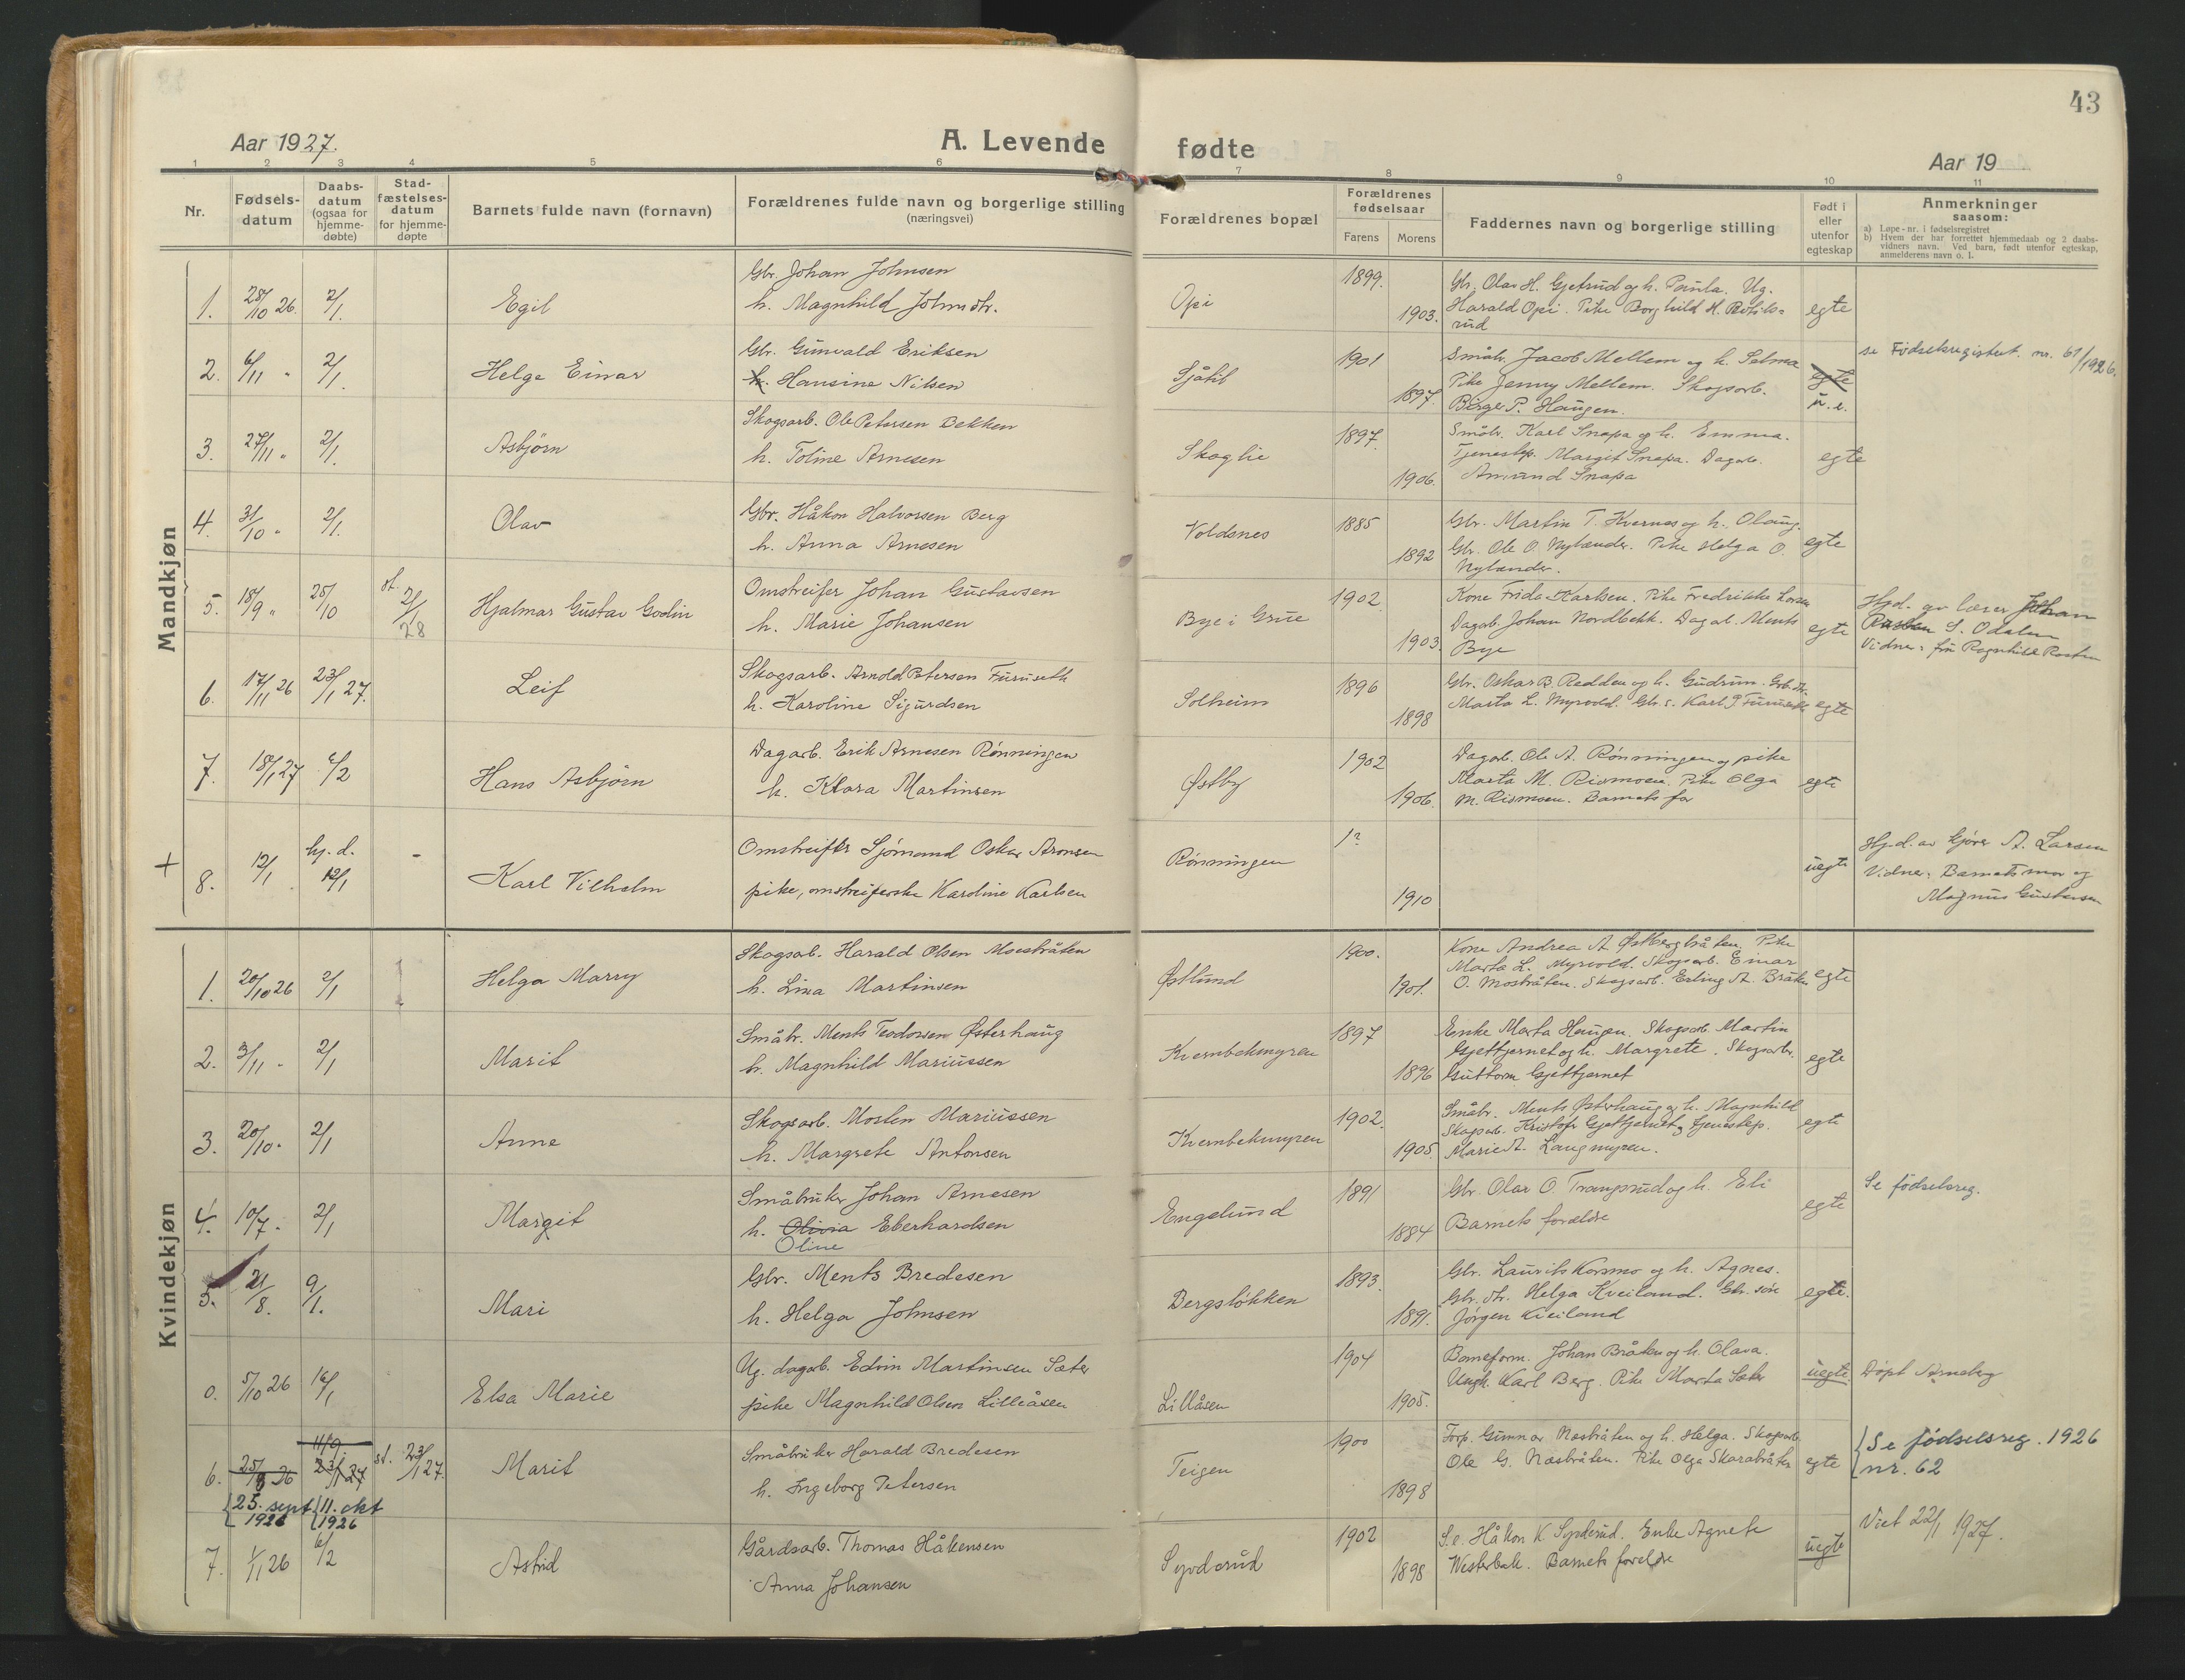 43
Aar 1927.
A. Levende fødte
Aar 19
1 2 3 4 5 6 7 8 9 10 11
Nr.
Fødsels-datum
Daabs-datum (ogsaa for hjemme-døbte)
Stad-fæstelses-datum for hjemme-døpte
Barnets fulde navn (fornavn)
Forældrenes fulde navn og borgerlige stilling (næringsvei)
Forældrenes bopæl
Forældrenes fødselsaar
Farens Morens
Faddernes navn og borgerlige stilling
Født i eller utenfor egteskap
Anmerkninger saasom:
a) Løpe-nr. i fødselsregistret
b) Hvem der har forrettet hjemmedaab og 2 daabs-vidners navn. Ved barn, født utenfor egteskap, anmelderens navn o. l.
Mandkjøn
1. 25/10 26. 2/1. Egil
Gbr. Johan Johnsen
h. Magnhild Johnsdtr.
Opi 1899. 1903.
Gbr. Olav H. Gjetrud og h. Paula. Ug.
Harald Opi. Pike Borghild H.
rud
egte
2. 6/11 " 2/1. Helge Einar
Gbr. Gunvald Eriksen
h. Hansine Nilsen
Sjåtil 1901 1897.
Småbr. Jacob Mellem og h. Selma
Pike Jenny Mellem. Skogsarb.
Birger P. Haugen.
egte
u. e.
se Fødselsregistret. nr. 61/1926.
3. 27/11 " 2/1. Asbjörn
Skogsarb. Ole Petersen Bekken
h. Toline Arnesen
Skoglie 1897. 1906.
Småbr. Karl Snapa og h. Emma.
Tjenestep. Margit Snapa. Dagarb.
Amund Snapa
egte
4. 31/10 " 2/1. Olav
Gbr. Håkon Halvorsen Berg
h. Anna Arnesen
Voldsnes 1885 1892
Gbr. Martin T. Kvernes og h. Olaug.
Gbr. Ole O. Nylænder. Pike Helga O.
Nylænder.
egte
5. 18/9 " 25/10 st. 2/1 28 Hjalmar Gustav Godin
Omstreifer Johan Gustavsen
h. Marie Johansen
Bye i Grue 1902. 1903.
Kone Frida Karlsen. Pike Fredrikke Larsen
Dagarb. Johan Nordbekk. Dagarb. Ments
Bye
egte
Hjd. av lærer Johan
S. Odalen
Vidner: fru Ragnhild
6. 17/11 26 23/1 27. Leif
Skogsarb. Arnold Petersen Furuseth
h. Karoline Sigurdsen
Solheim 1896 1898
Gbr. Oskar B. Redden og h. Gudrun. Gbr. dtr.
Marta L. Myrvold. Gbr. s. Karl P. Furuseth
egte
7. 18/1 27 6/2 Hans Asbjörn
Dagarb. Erik Arnesen Rönningen
h. Klara Martinsen
Østby 1902 1906.
Dagarb. Ole A. Rönningen og pike
Marta M. Rismoen. Pike Olga
M. Rismoen. Barnets far
egte
+ 8. 12/1 hj. d. 12/1 - Karl Vilhelm
Omstreifer Sjömand Oskar Aronsen
pike, omstreiferske Karoline Karlsen
Rönningen 1? 1910
uegte
Hjd. av gjörer A. Larsen
Vidner: Barnets mor og
Magnus Gustavsen
Kvindekjøn
1. 20/10 26 2/1 Helga Marry
Skogsarb. Harald Olsen Mosstråten
h. Lina Martinsen
Østlund 1900. 1901.
Kone Andrea A Østbergbråten. Pike
Marta L. Myrvold. Skogsarb. Einar
O. Mostråten. Skogsarb. Erling A. Bråten
egte
2. 3/11 " 2/1 Marit
Småbr. Ments Teodorsen Østerhaug
h. Magnhild Mariussen
Kvernbekmyren 1897 1896
Enke Marta Haugen. Skogsarb Martin
Gjettjernet og h. Margrete. Skogsarb.
Guttorm Gjettjernet
egte
3. 20/10 " 2/1 Anne
Skogsarb. Morten Mariussen
h. Margrete Antonsen
Kvernbekmyren 1902. 1905.
Småbr. Ments Østerhaug og h. Magnhild
Skogsarb. Kristofr Gjettjernet og tjenestep.
Marie A. Langmyren.
egte
4. 10/7 " 2/1 Margit
Småbruker Johan Arnesen
h. Olivia Eberhardsen
Oline
Engelund 1891 1884
Gbr. Olav O. Trangsrud og h. Eli
Barnets forældre
egte
Se födselsreg.
5. 21/8. 9/1. Mari
Gbr. Ments Bredesen
h. Helga Johnsen
Bergslökken 1893. 1891.
Gbr. Laurits Kormo og h. Agnes.
Gbr. dtr. Helga Kveiland. Gbr. sön
Jörgen Kveiland
egte.
0. 5/10 26 16/1 Elsa Marie
Ug. dagarb. Edvin Martinsen Sæter
pike Magnhild Olsen Lilleåsen
Lillåsen 1904 1905.
Baneform. Johan Bråten og h. Olava.
Ungk. Karl Berg. Pike Marta Sæter
uegte
Döpt Arneberg
6. 25/8 26 11/9 23/1 27 st. 23/1 27. Marit
25. sept 1926 11. okt 1926
Småbruker Harald Bredesen
h. Ingeborg Petersen
Teigen 1900 1898
Forp. Gunnar Næsbråten og h. Helga. Skogsarb.
Ole G. Næsbråten. Pike Olga Skarabråten
egte
Se födselsreg. 1926
nr. 62
7. 1/11 26 6/2 Astrid
Gårdsarb. Thomas Håkensen
Anna Johansen
Syvdsrud 1902 1898
S.e. Håkon K Syvdsrud. Enke Agnete
Westerbak. Barnets foreldre
uegte
Viet 22/1 1927.